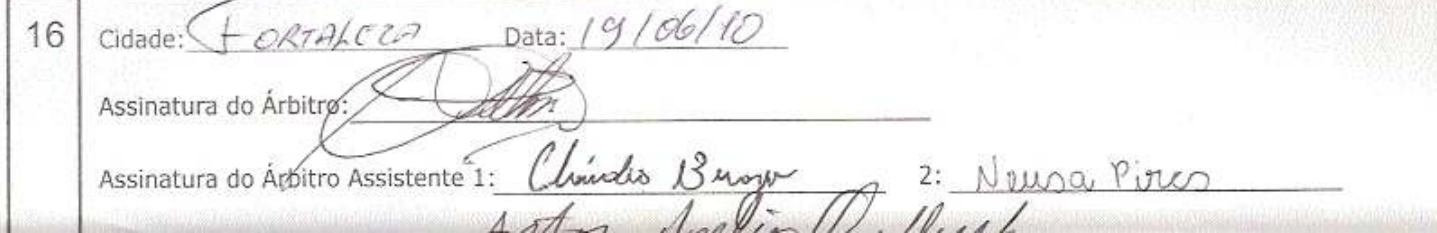 16 Cidade: FORTALEZA Data: 19/06/10
Assinatura do Árbitro:
Assinatura do Árbitro Assistente 1: Cláudio 2: Neusa Pires